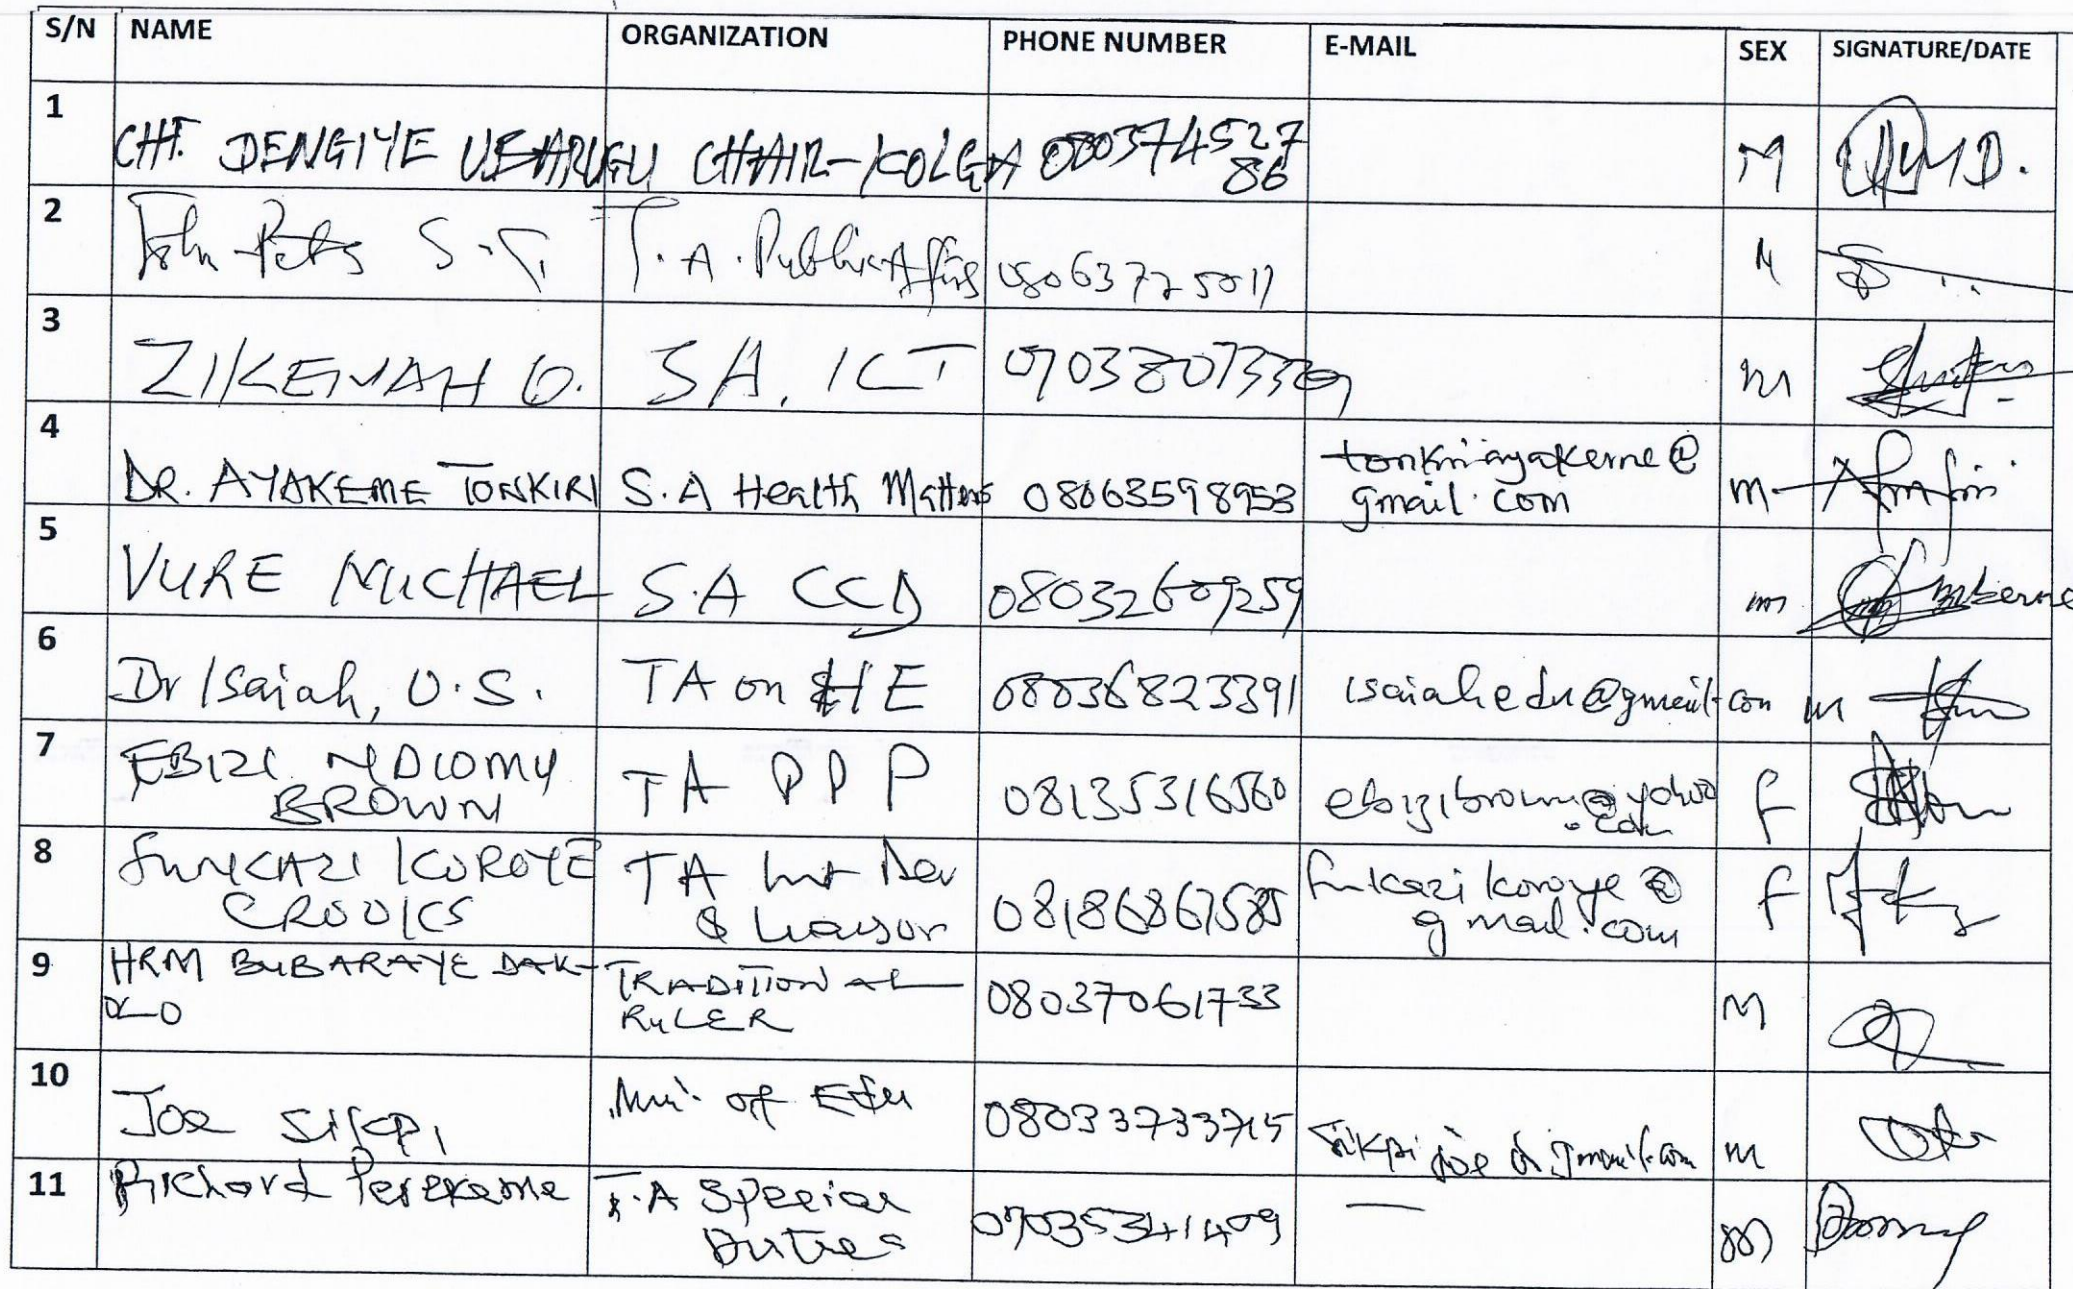 S/N NAME ORGANIZATION PHONE NUMBER E-MAIL SEX SIGNATURE/DATE
1 CHF. DENGIYE UBARUGU CHAIR-KOLGA 080374527
86 M
2 John Peters S.T. T.A. Public Affairs 08063725011 M
3 ZIKENAH O. SA. ICT 07038073339 m
4 DR. AYAKEME TONKIRI S.A Health Matters 08063598953 tonkiriayakeme@
gmail.com m
5 VURE MICHAEL S.A CCD 08032609259 m
6 Dr Isaiah, U.S. TA on HE 08036823391 isaiahedu@gmail.com m
7 EBIZI NDIOMY
BROWN TA PPP 08135316560 ebizibrown@yahoo
.com f
8 FUNKAZI KOROYE
CROOKS TA Int Dev
& Liaison 08186867585 funkazikoroye@
gmail.com f
9 HRM BUBARAYE DAK-
OLO TRADITIONAL
RULER 08037061733 M
10 Joe Sikpi Min. of Edu 08033733715 m
11 Richard Perekeme T.A Special
Duties 07035341409 — m